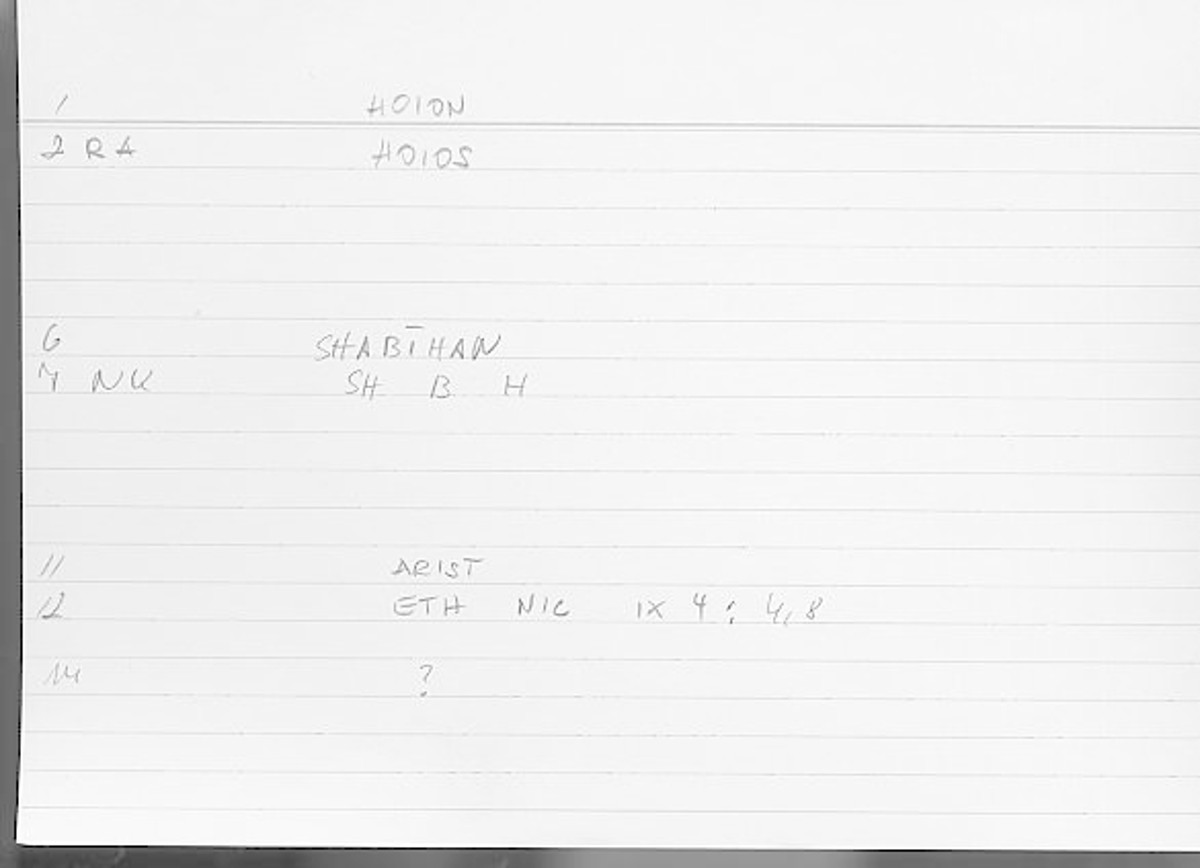 1 HOION
2 RA HOIOS
6 SHABĪHAN
7 NK SH B H
11 ARIST
12 ETH NIC IX 4 : 4,8
14 ?